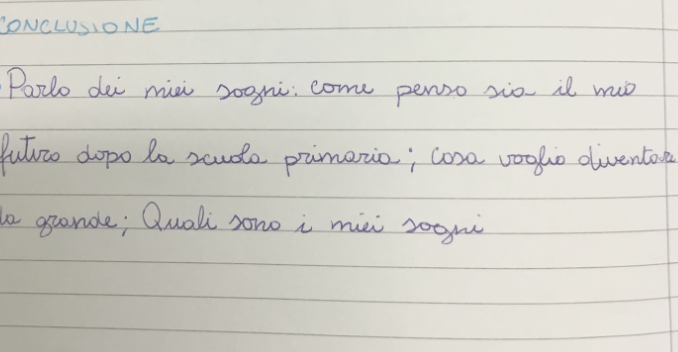 CONCLUSIONE
Parlo dei miei sogni: come penso sia il mio
futuro dopo la scuola primaria; cosa voglio diventare
da grande; Quali sono i miei sogni